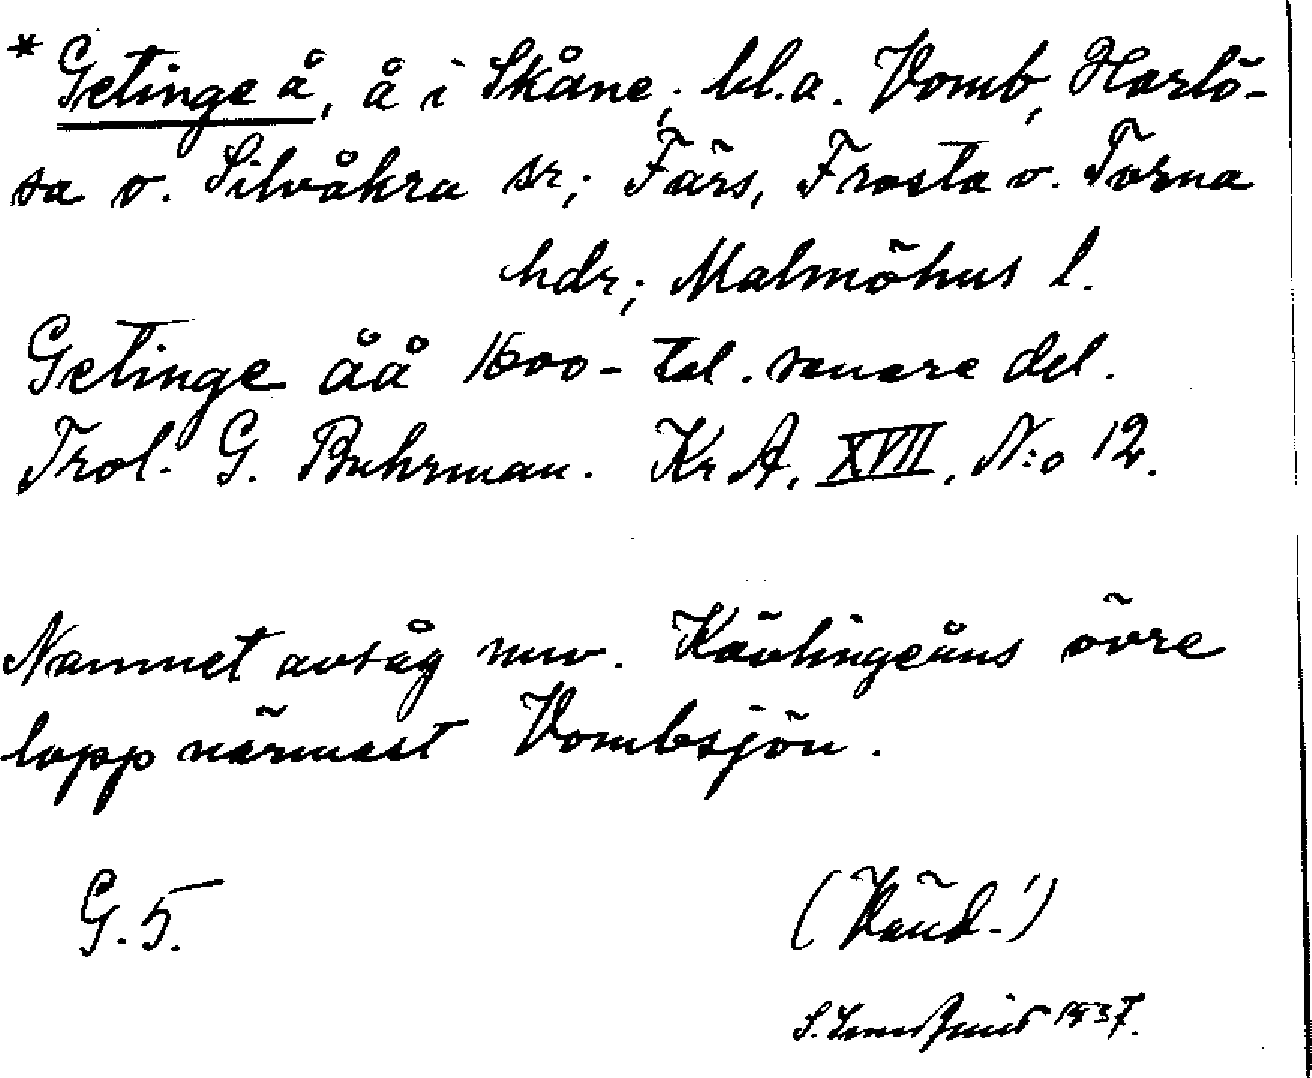 * Getinge å, å i Skåne, bl.a. Vomb, Harlö-
sa o. Silvåkra sr; Färs, Frosta o. Torna
hdr; Malmöhus l.
Getinge åå 1600-tal. senare del.
Trol. G. Buhrman. Kr A, XVII, N:o 12.
Namnet avsåg nuv. Kävlingeåns övre
lopp närmast Vombsjön.
G. 5.
(Vänd!)
S. 1937.